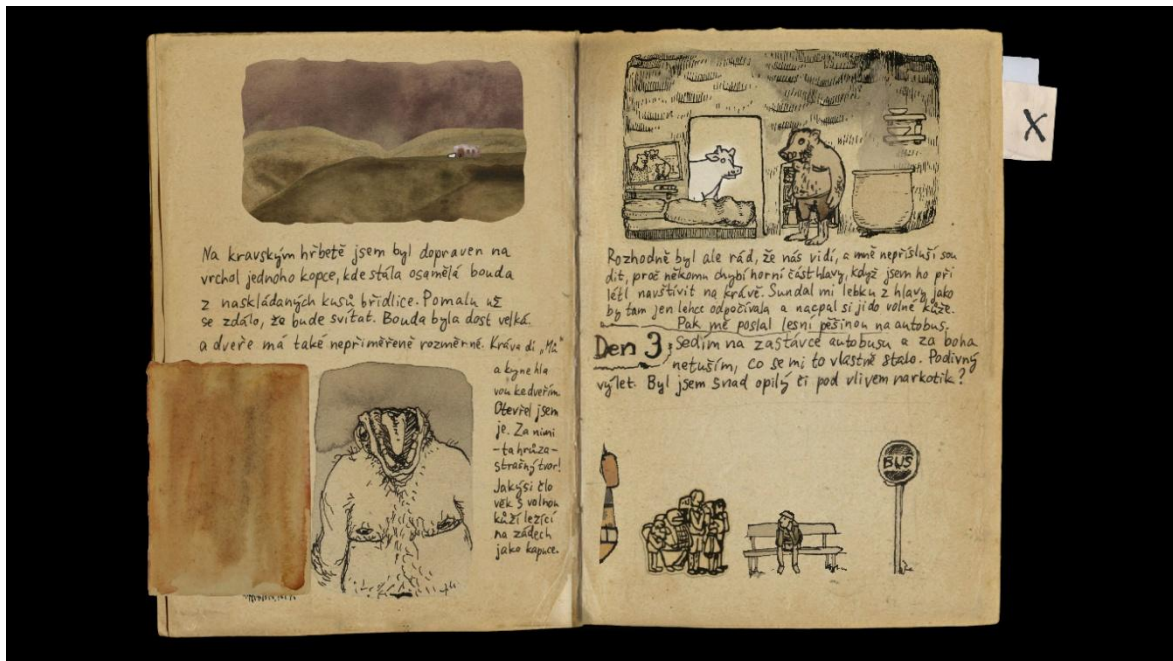 Na kravským hřbetě jsem byl dopraven na
vrchol jednoho kopce, kde stála osamělá bouda
z naskládaných kusů břidlice. Pomalu už
se zdálo, že bude svítat. Bouda byla dost velká
a dveře má také nepřiměřeně rozměrné. Kráva dí „Mů"
a kyne hla
vou ke dveřím.
Otevřel jsem
je. Za nimi
- ta hrůza-
strašný tvor!
Jakýsi člo
věk s volnou
kůží ležící
na zádech
jako kapuce.
X
Rozhodně byl ale rád, že nás vidí, a mně nepřísluší sou
dit, proč někomu chybí horní část hlavy, když jsem ho při
létl navštívit na krávě. Sundal mi lebku z hlavy jako
by tam jen lehce odpočívala a nacpal si ji do volné kůže.
Pak mě poslal lesní pěšinou na autobus.
Den 3; Sedím na zastávce autobusu a za boha
netuším, co se mi to vlastně stalo. Podivný
výlet. Byl jsem snad opilý či pod vlivem narkotik?
BUS